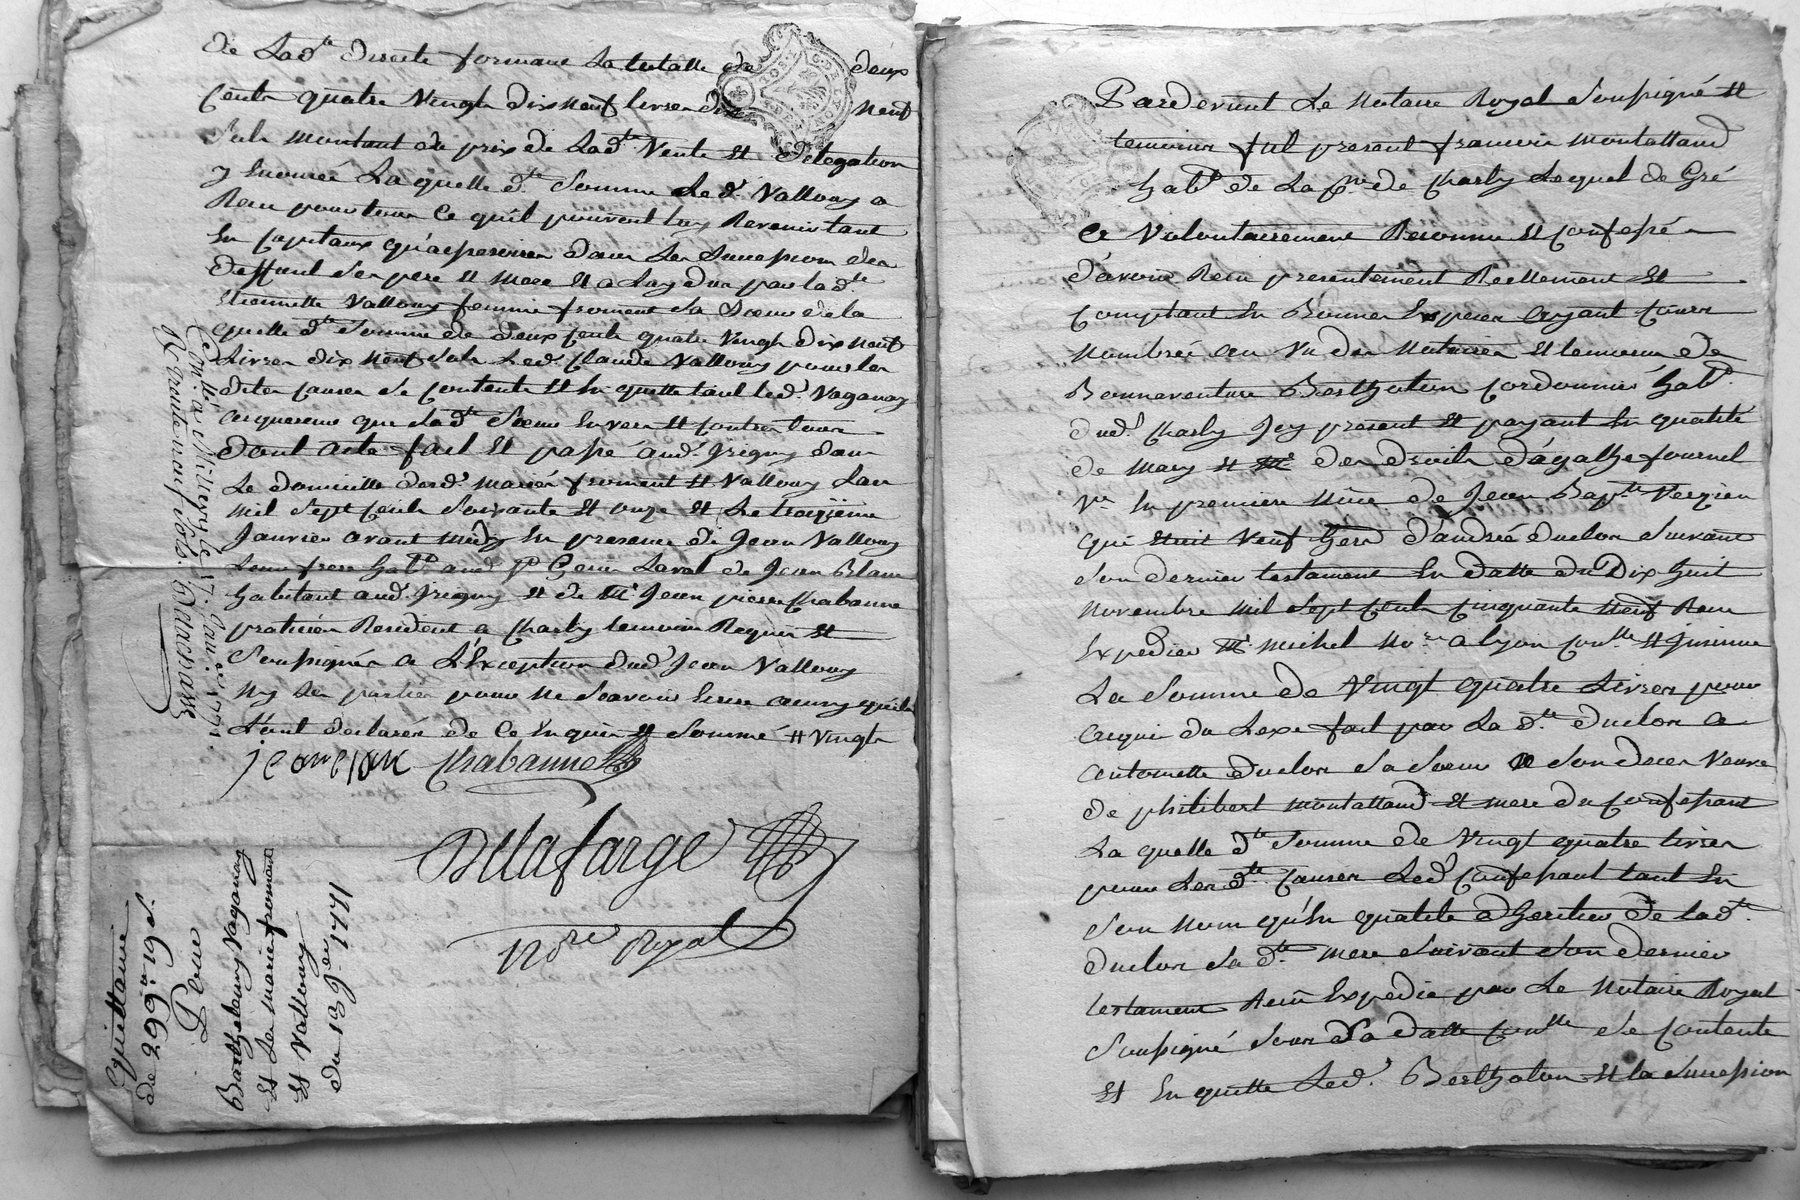 de Lad.te directe formant La totalle de deux
Cents quatre Vingts dix neuf livres dix neuf
Sols montant du prix de Lad.te Vente et délégation
y énoncée La quelle d.te Somme Led. Vallouy a
Reçu pour tout ce qu'il pouvoit luy Revenir tant
En Capitaux qu'accessoires dans Les Successions des
deffunt Ses pere et mere et a luy dus par lad.te
Etiennette Vallouy femme froment Sa Sœur de la
quelle d.te Somme de deux Cents quatre Vingts dix neuf
Livres dix neuf Sols Led. Claude Vallouy pour les
dites causes Se contente et En quitte tant led. Vaganay
acquereur que Lad.te Sœur Envers et Contre tous
dont acte fait et passé aud. Irigny dans
Le domicille desd. mariés froment et Vallouy L'an
mil Sept Cents Soixante et onze et Le troizieme
Janvier avant midy En presence de Jean Vallouy
Leur frere hab.t aud. Laval de Jean Blanc
habitant aud. Irigny et de M.e Jean pierre Chabanne
praticien Resident a Charly temoins Requis et
Soussignés a L'Exception dud. Jean Vallouy
ny les parties pour ne Scavoir Ecrire ainsy qu'ils
L'ont declarés de ce Enquis et Sommé # Vingts
jean blanc Chabanne
Delafarge
No.re Royal
Conllé a Millery le 17. Janv. 1771.
Rx quatorze sols. Marnasse
Quittance
de 299 # 19 s.
Pour
Barthelemy Vaganay
Et Les mariés froment
Et Vallouy
du 1771
Pardevant Le Notaire Royal Soussigné et
temoins fut present francois montalland
hab.t de La p.sse de Charly Lequel de Gré
Ce Volontairement Reconnu et Confessé
d'avoir Reçu presentement Reellement et
Comptant En Bonnes Especes ayant Cours
Nombrée au Vu des Notaires et temoins de
Bonnaventure Bertholon Cordonnier hab.t
dud. Charly Icy present et payant En qualité
de mary et M.e des droits d'agathe fournel
V.e En premiere Nôce de Jean Bap.te Verzien
qui etoit Neuf her. d'andrée duclos Suivant
Son dernier testament En datte du Dix huit
Novembre mil Sept Cents Cinquante Neuf Reçu
Expedier M.e michel No.re a lyon Con.llé et Insinué
La Somme de Vingt quatre Livres pour
acquit du Lexs fait par La d.te duclos a
antoinette duclos Sa Sœur a Son deces Veuve
de philibert montalland et mere du Confessant
La quelle d.te Somme de Vingt quatre livres
pour Les d.tes Causes Led. Confessant tant En
Son Nom qu'En qualité d'heritier de lad.te
duclos Sa d.te mere Suivant Son dernier
testament Recu Expedié par Le Notaire Royal
Soussigné Sous Sa datte Con.llé Se Contente
et En quitte Led. Berthollon et la Succession